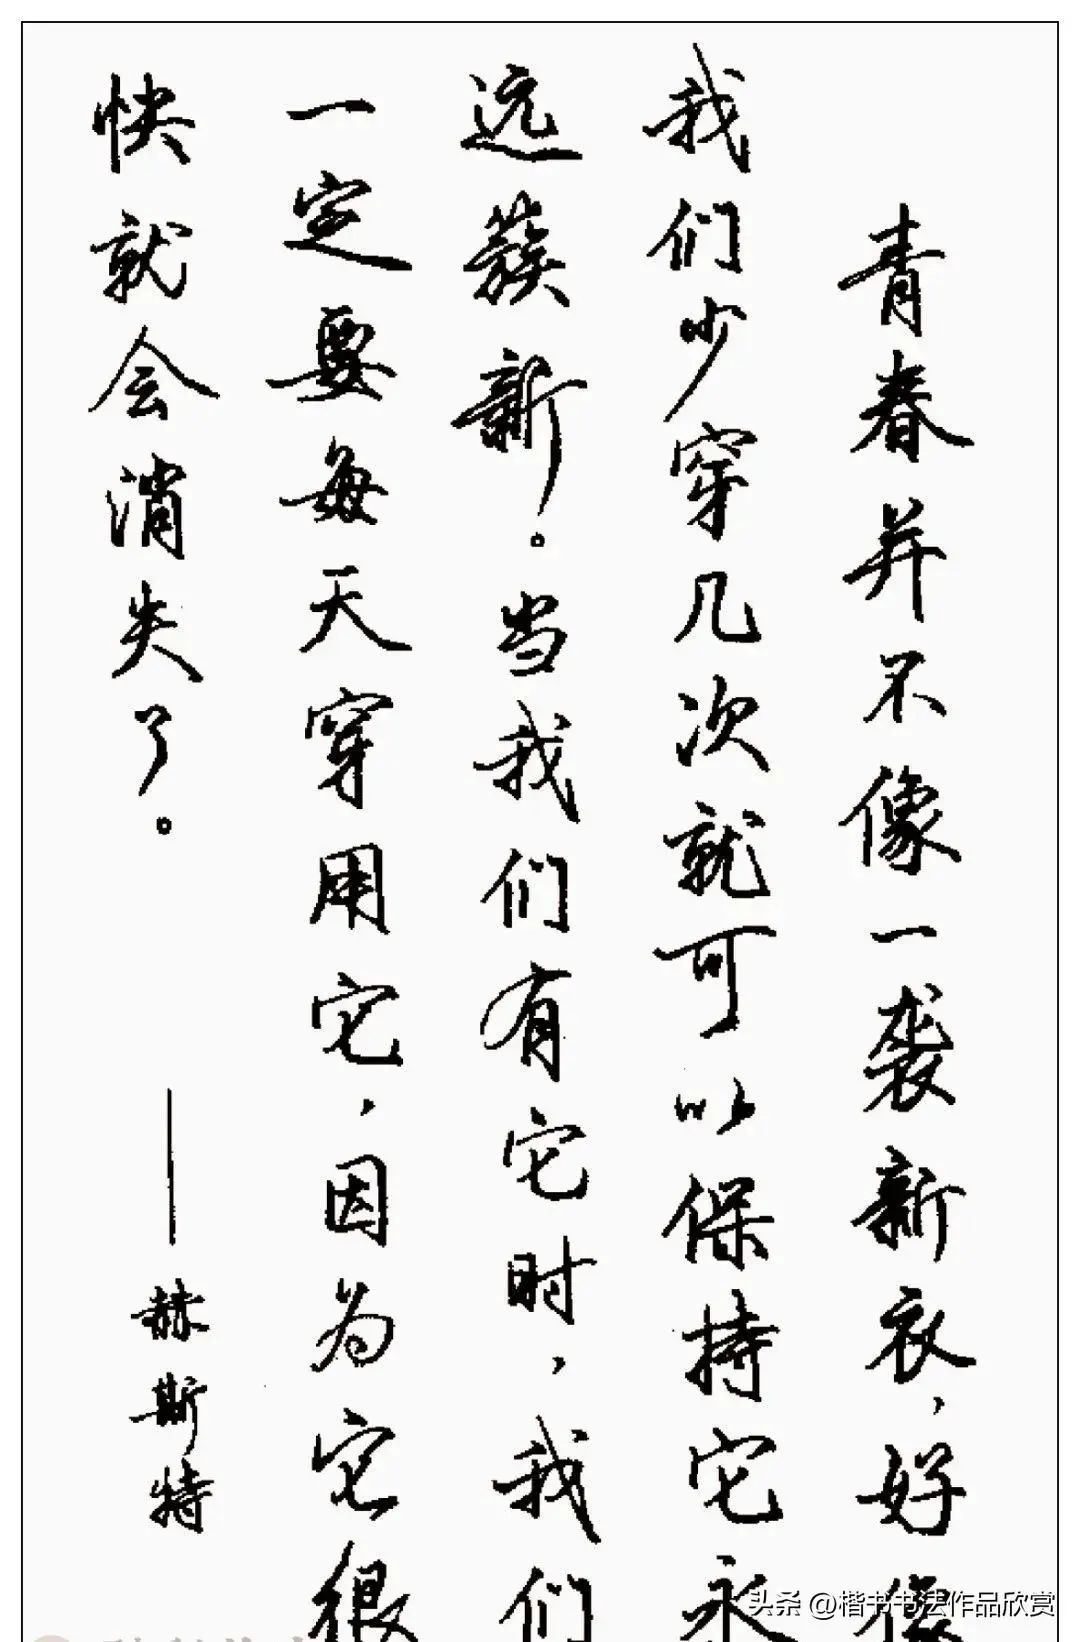 青春并不像一袭新衣，好像
我们少穿几次就可以保持它永
远簇新。当我们有它时，我们
一定要每天穿用它，因为它很
快就会消失了。
——赫斯特
头条 @楷书书法作品欣赏